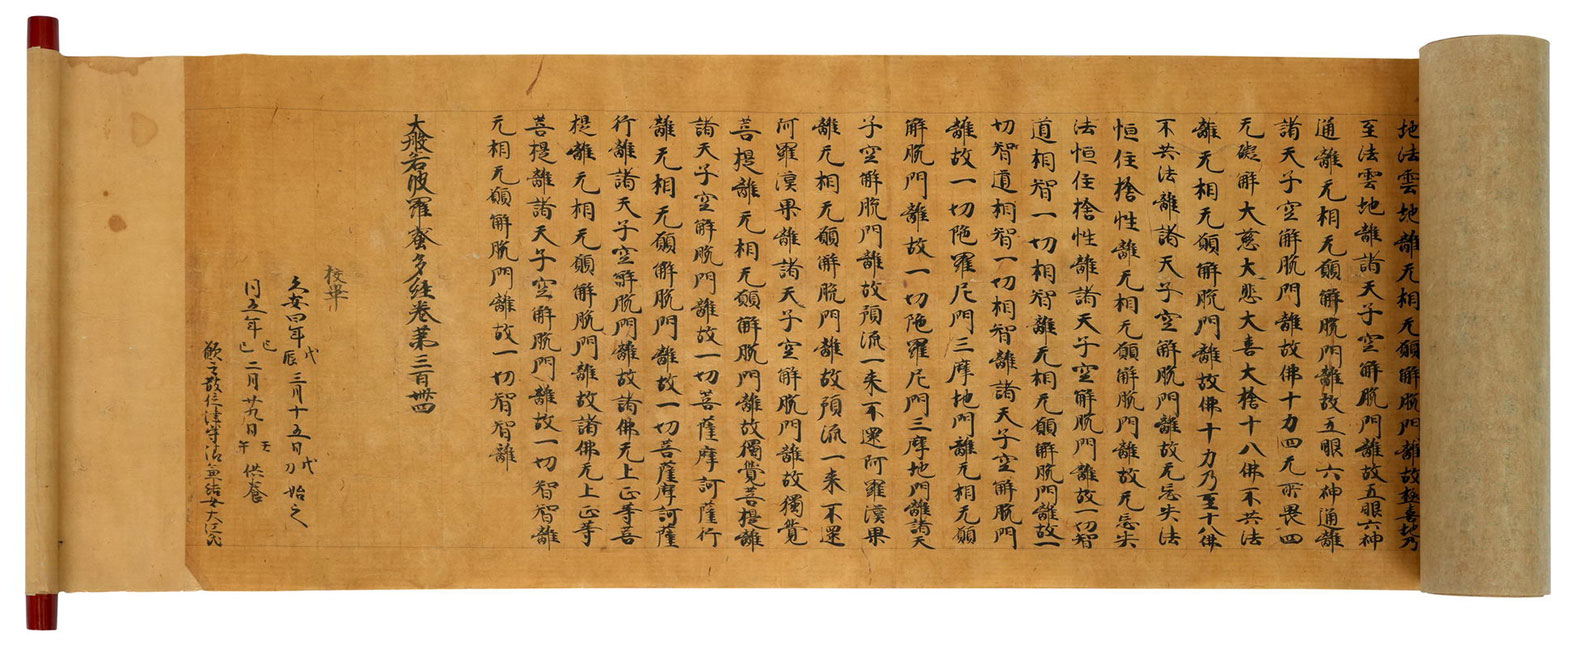 地法雲地離无相无願解脱門離故極喜地乃
至法雲地離諸天子空解脱門離故五眼六神
通離无相无願解脱門離故五眼六神通離
諸天子空解脱門離故佛十力四无所畏四
无礙解大慈大悲大喜大捨十八佛不共法
離无相无願解脱門離故佛十力乃至十八佛
不共法離諸天子空解脱門離故无忘失法
恒住捨性離无相无願解脱門離故无忘失
法恒住捨性離諸天子空解脱門離故一切智
道相智一切相智離无相无願解脱門離故一
切智道相智一切相智離諸天子空解脱門
離故一切陁羅尼門三摩地門離无相无願
解脱門離故一切陁羅尼門三摩地門離諸天
子空解脱門離故預流一来不還阿羅漢果
離无相无願解脱門離故預流一来不還
阿羅漢果離諸天子空解脱門離故獨覺
菩提離无相无願解脱門離故獨覺菩提離
諸天子空解脱門離故一切菩薩摩訶薩行
離无相无願解脱門離故一切菩薩摩訶薩
行離諸天子空解脱門離故諸佛无上正等菩
提離无相无願解脱門離故諸佛无上正等
菩提離諸天子空解脱門離故一切智智離
无相无願解脱門離故一切智智離
大般若波羅蜜多經卷第三百卌四
校畢
久安四年戊辰三月十五日戊 始之
同五年己巳二月廿九日壬午供養
願主散位津守 結女大江氏